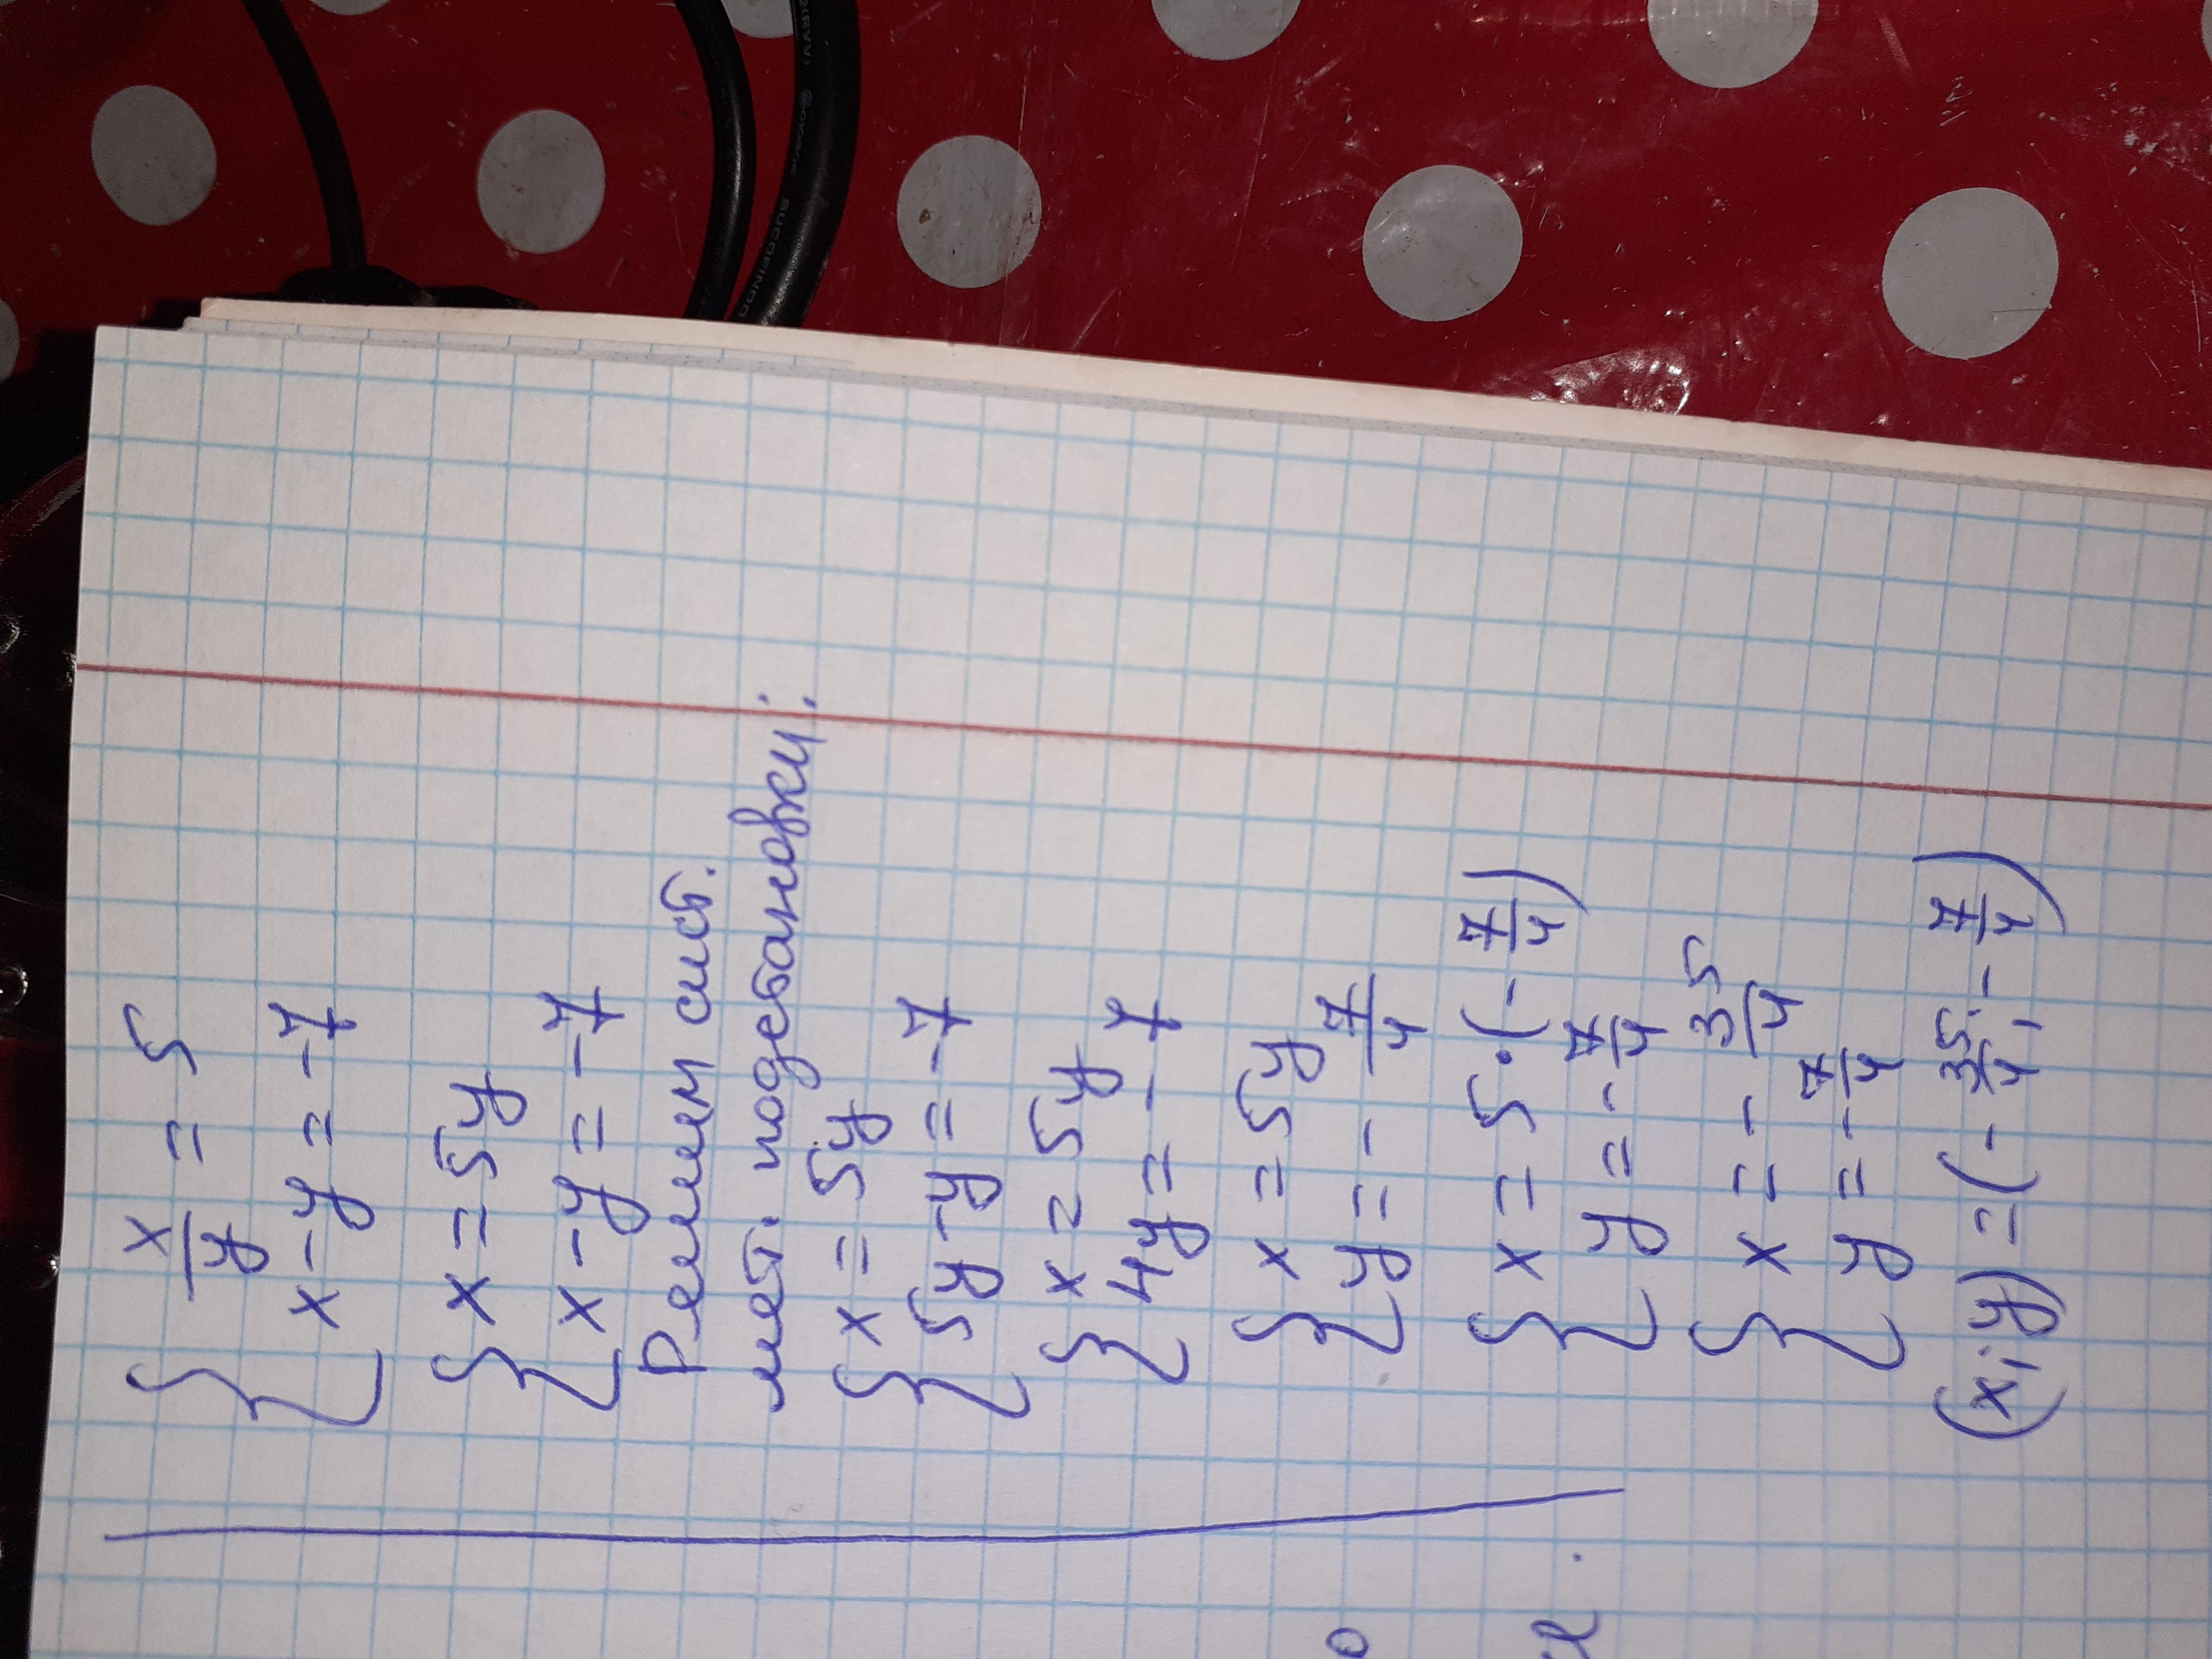 { x/y = 5
x - y = -7
{ x = 5y
x - y = -7
Решим сист.
мет. подстановки:
{ x = 5y
5y - y = -7
{ x = 5y
4y = -7
{ x = 5y
y = - 7/4
{ x = 5·(- 7/4)
y = - 7/4
{ x = - 35/4
y = - 7/4
(x; y) = (- 35/4; - 7/4)